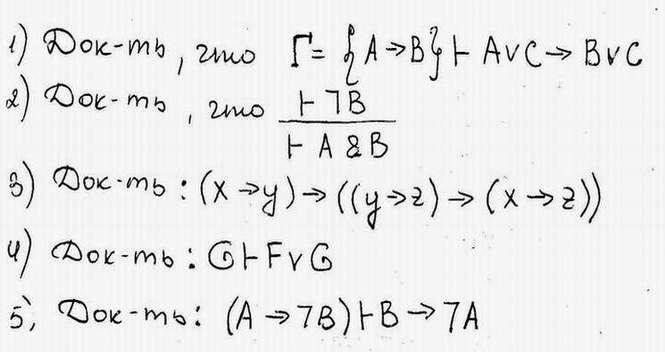 1) Док-ть, что Г = {A → B} ⊢ A∨C → B∨C
2) Док-ть, что ⊢ ⅂B
⊢ A & B
3) Док-ть: (x → y) → ((y → z) → (x → z))
4) Док-ть: G ⊢ F∨G
5) Док-ть: (A → ⅂B) ⊢ B → ⅂A